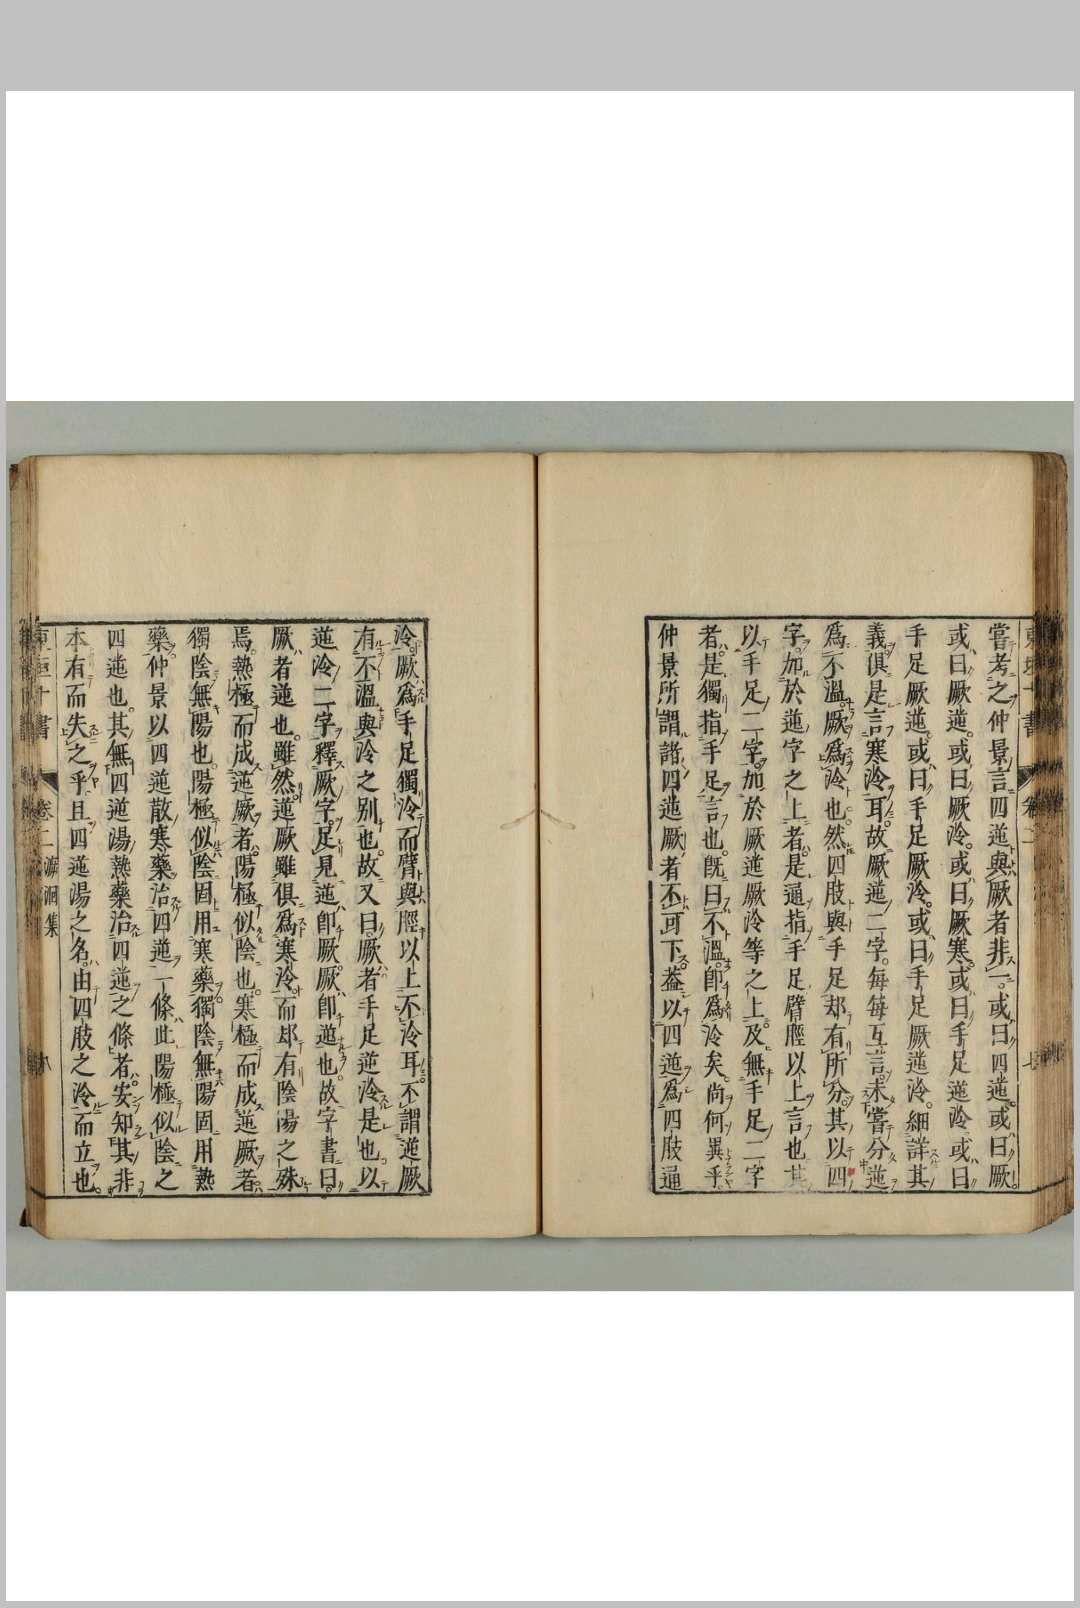 嘗考之仲景言四逆與厥者非一或曰四逆或曰厥
或曰厥逆或曰厥冷或曰厥寒或曰手足逆冷或曰
手足厥逆或曰手足厥冷或曰手足厥逆冷細詳其
義俱是言寒冷耳故厥逆二字每每互言未嘗分逆
爲不溫厥爲冷也然四肢與手足却有所分其以四
字加於逆字之上者是通指手足臂脛以上言也其
以手足二字加於厥逆厥冷等之上及無手足二字
者是獨指手足言也既曰不溫卽爲冷矣尚何異乎
仲景所謂諸四逆厥者不可下蓋以四逆爲四肢通
冷厥爲手足獨冷而臂與脛以上不冷耳不謂逆厥
有不溫與冷之别也故又曰厥者手足逆冷是也以
逆冷二字釋厥字足見逆卽厥厥卽逆也故字書曰
厥者逆也雖然逆厥雖俱爲寒冷而却有陰陽之殊
焉熱極而成逆厥者陽極似陰也寒極而成逆厥者
獨陰無陽也陽極似陰固用寒藥獨陰無陽固用熱
藥仲景以四逆散寒藥治四逆一條此陽極似陰之
四逆也其無四逆湯熱藥治四逆之條者安知其非
本有而失之乎且四逆湯之名由四肢之冷而立也
東垣十書
卷二
溯洄集